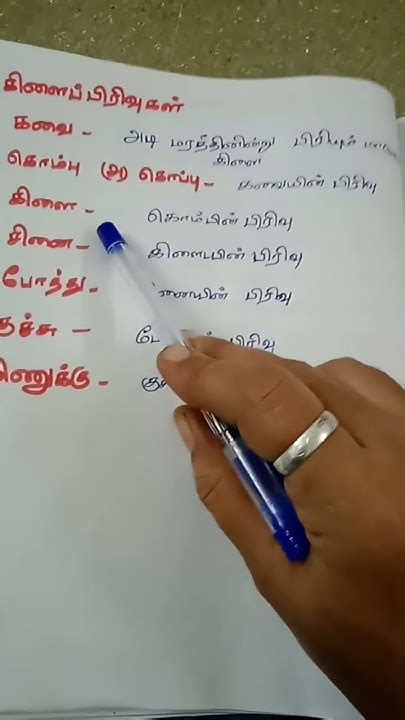 கிளைப்பிரிவுகள்
கவை - அடி மரத்தினின்று பிரியும்
கிளை
கொம்பு (அ) கொப்பு - கவையின் பிரிவு
கிளை - கொம்பின் பிரிவு
சினை - கிளையின் பிரிவு
போத்து - னையின் பிரிவு
குச்சு - பிரிவு
இணுக்கு -